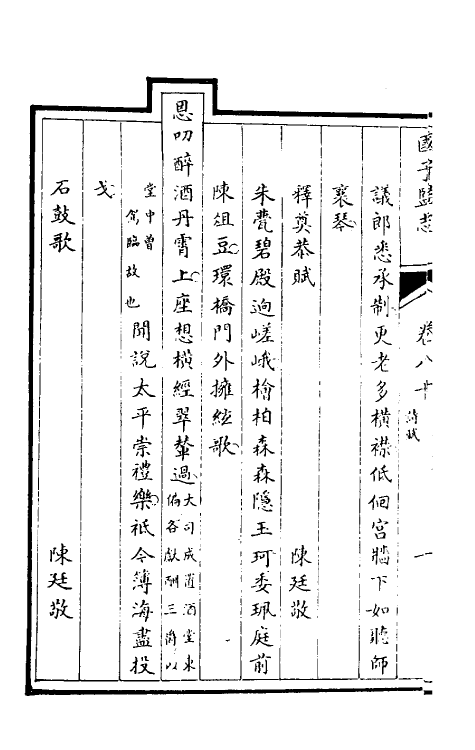 國子監志 卷八十 詩賦 一
議郎悉承制更老多橫襟低佪宮牆下如聽師
襄琴
釋奠恭賦 陳廷敬
朱甍碧殿迥嵯峨檜柏森森隱玉珂委珮庭前
陳俎豆環橋門外擁絃歌
恩叨醉酒丹霄上座想橫經翠輦過大司成蒞酒堂東偏各獻酬三爵以
堂中曾駕臨故也聞說太平崇禮樂祗令薄海盡投
戈
石鼓歌 陳廷敬